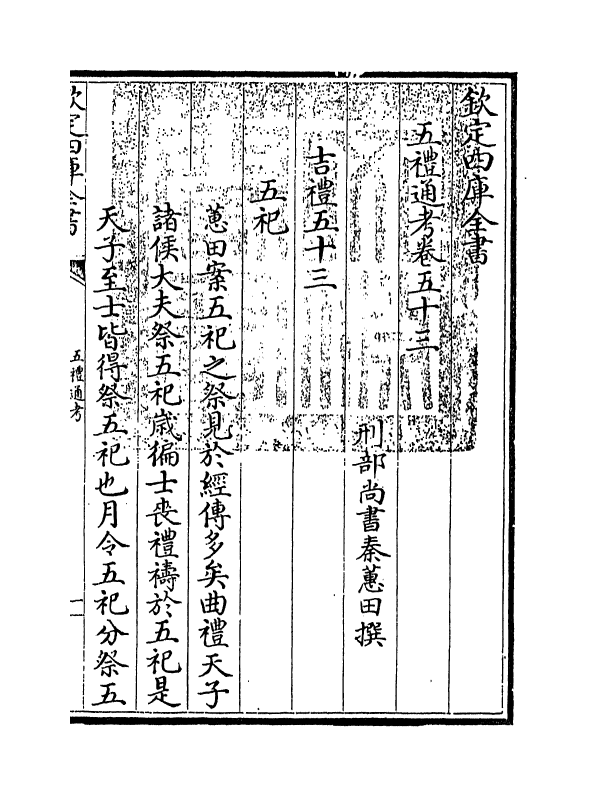 欽定四庫全書
五禮通考卷五十三
刑部尚書秦蕙田撰
吉禮五十三
五祀
蕙田案五祀之祭見於經傳多矣曲禮天子
諸侯大夫祭五祀歲徧士喪禮禱於五祀是
天子至士皆得祭五祀也月令五祀分祭五
欽定四庫全書
五禮通考
一